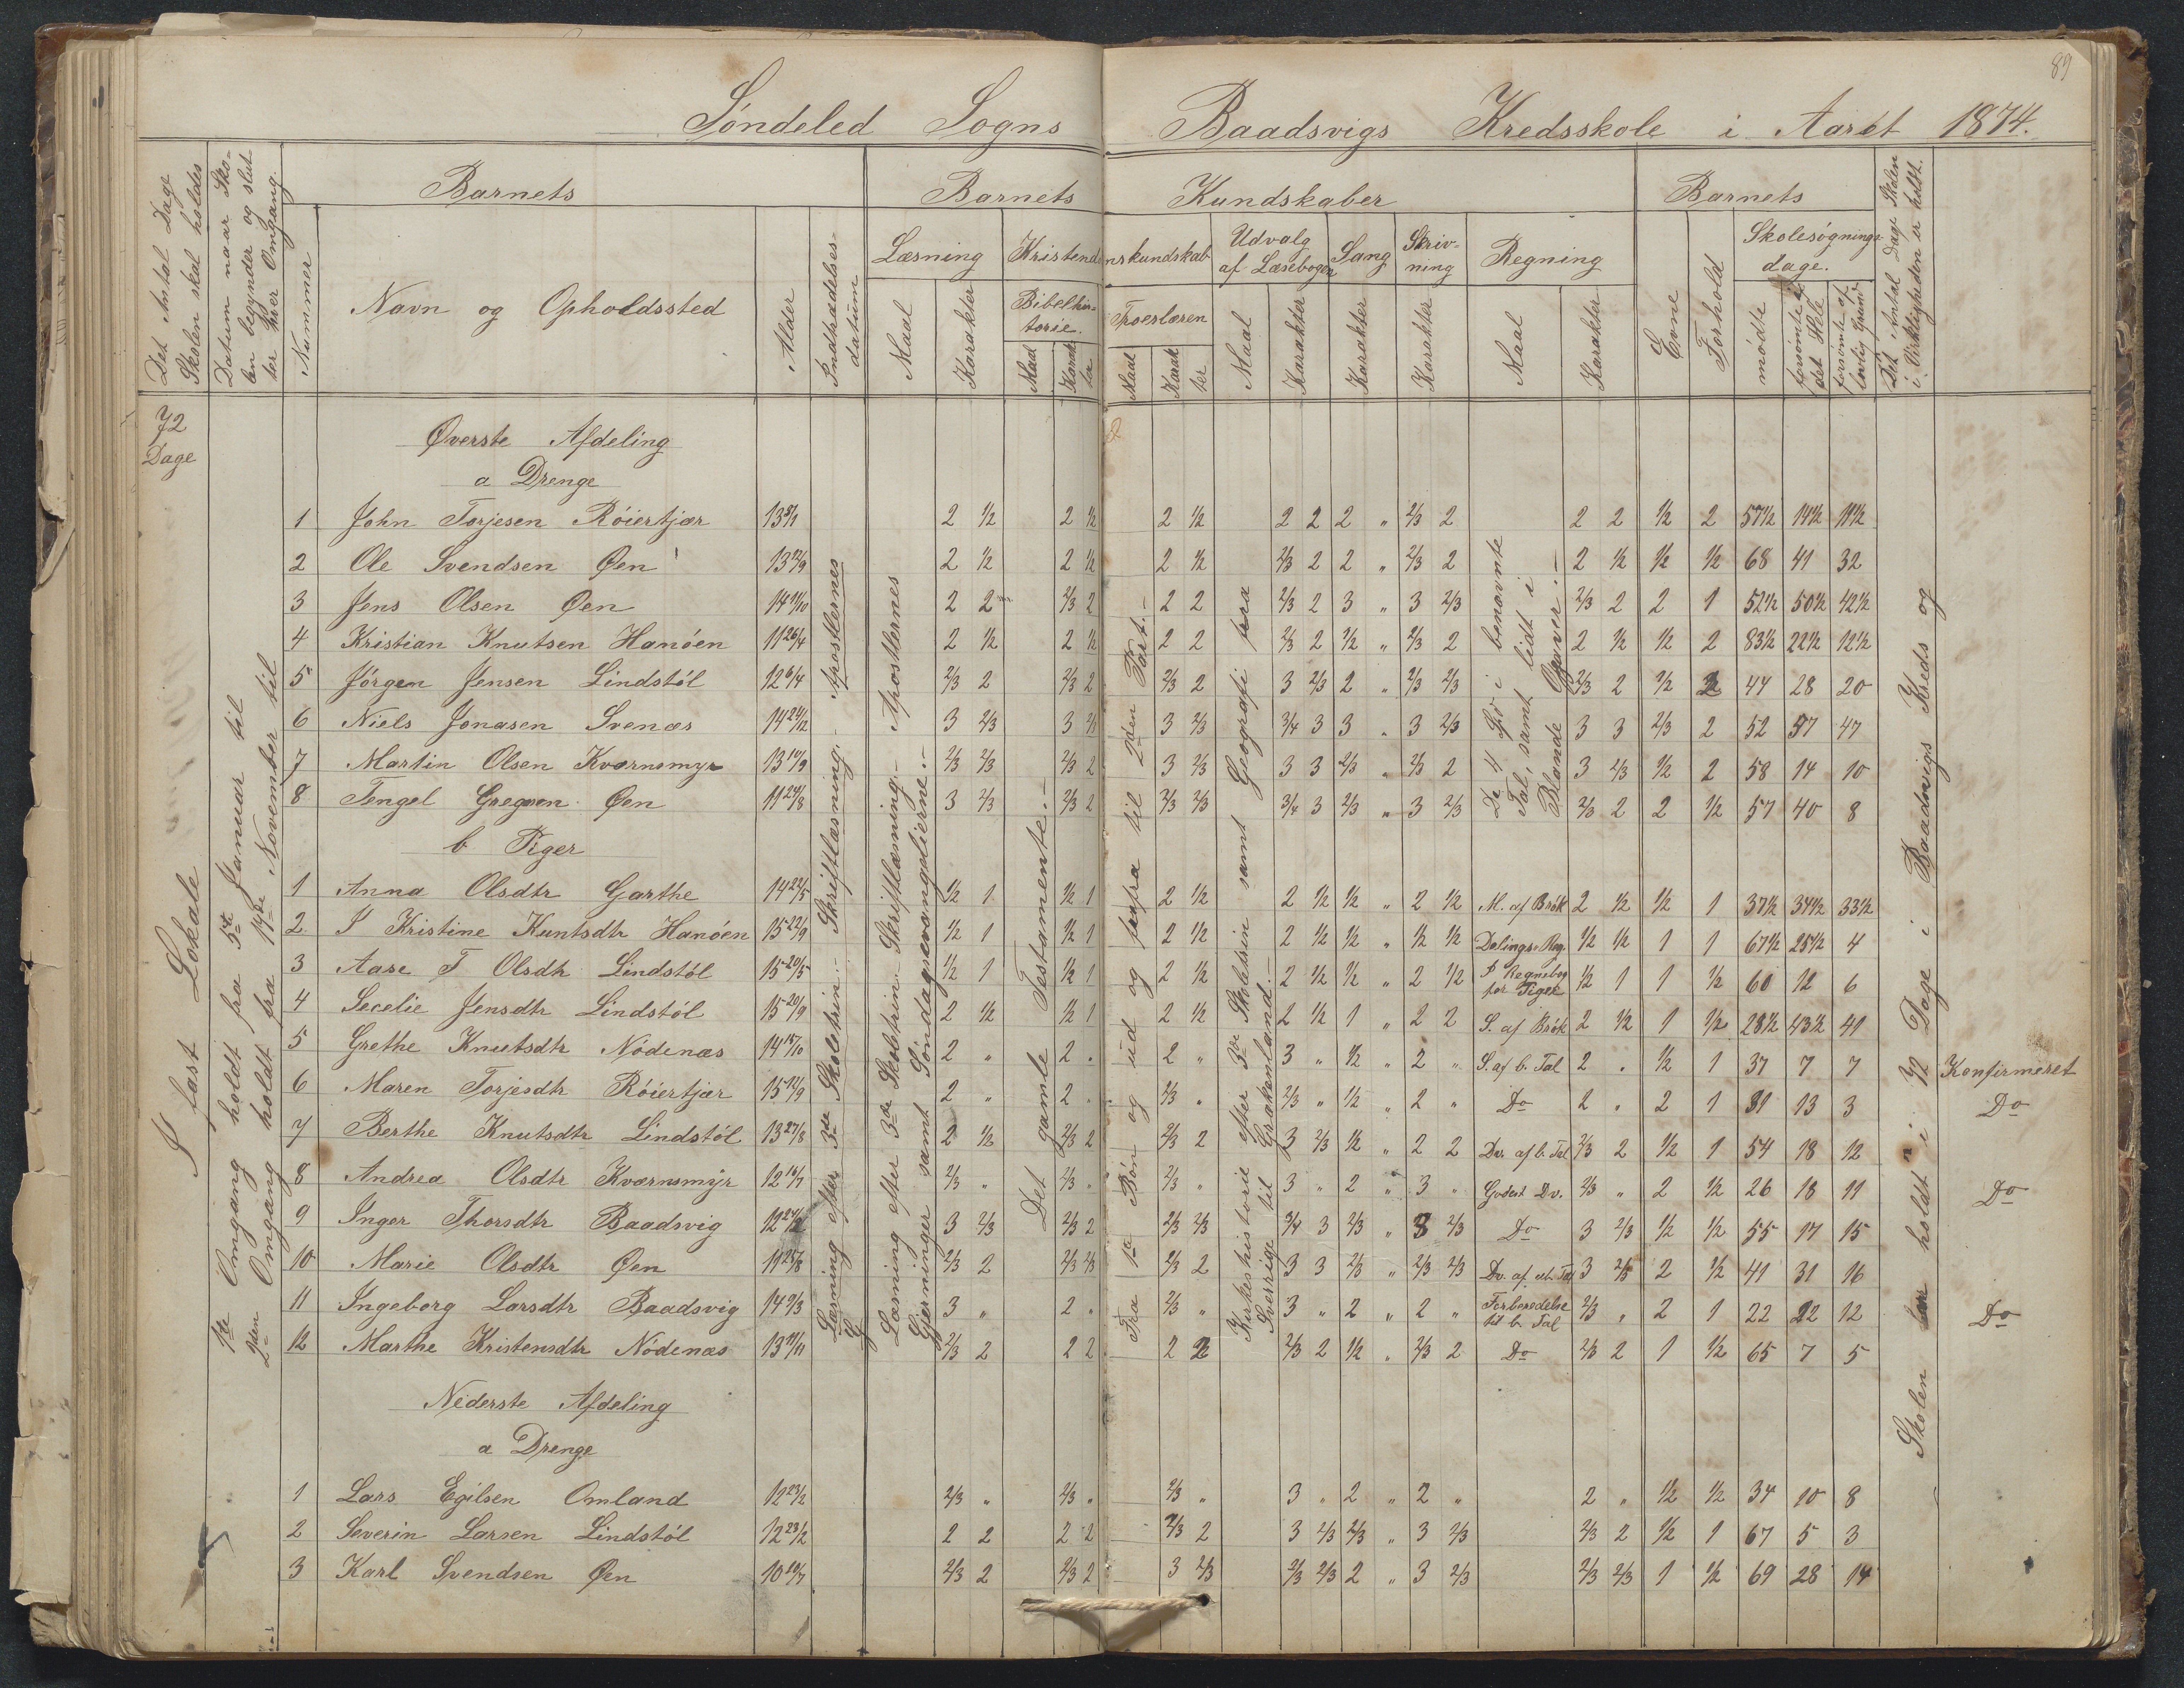 89
Søndeled Sogns Baadsvigs Kredsskole i Aaret 1874.
Det Antal Dage Skolen skal holdes
Datum naar Skolen begynder og slutter hver Omgang.
Barnets
Nummer
Navn og Opholdssted
Alder
Indtrædelsesdatum
Barnets Kundskaber
Læsning
Maal
Karakter
Kristendomskundskab
Bibelhistorie.
Maal
Karakter
Troeslæren
Maal
Karakter
Udvalg af Læsebogen
Maal
Karakter
Sang
Karakter
Skrivning
Karakter
Regning
Maal
Karakter
Barnets
Evne
Forhold
Skolesøgningsdage.
mødte
forsømte det Hele
forsømte af lovlig Grund
Det Antal Dage Skolen i Virkeligheden er holdt.
72 Dage
I fast Lokale
1te Omgang holdt fra 5te Januar til
2den Omgang holdt fra 14de November til
Læsning efter 3die Skoletrin. Skriftlæsning. Apostlernes G
Læsning efter 3die Skoletrin Skriftlæsning. Apostlernes
Gjerninger samt Søndagsevangelierne.
Det gamle Testamente.
Fra 1te Bøn og ud og forfra til 2den Part.
Kirkehistorie efter 3die Skoletrin samt Geografi fra
Sverrige til Grækenland.
De 4 Sp. i benævnte
Tal, samt lidt i
Blande Opgaver.
Skolen har holdt i 72 Dage i Baadsvigs Kreds og
Øverste Afdeling
a Drenge
1 John Torjesen Röiertjær 13 2 ½ 2 ½ 2 ½ 2 2 2 " 2/3 2 2 2 ½ 2 57½ 14½ 11½
2 Ole Svendsen Øen 13 12/9 2 ½ 2 ½ 2 ½ 2/3 2 2 " 2/3 2 2 ½ ½ ½ 68 41 32
3 Jens Olsen Øen 14 11/10 2 2 2/3 2 2 2 2/3 2 3 " 3 2/3 2/3 2 2 1 52½ 50½ 42½
4 Kristian Knutsen Hanöen 11 26/4 2 ½ 2 ½ 2 2 2/3 2 ½ " 2/3 2 2 ½ ½ 2 83½ 22½ 12½
5 Jörgen Jensen Lindstöl 12 6/4 2/3 2 2/3 2 2/3 2 3 2/3 2 " 2/3 2/3 2/3 2 ½ 2 44 28 20
6 Niels Jonasen Svenæs 14 24/12 3 2/3 3 2/3 3 2/3 3/4 3 3 " 3 2/3 3 3 2/3 2 52 57 47
7 Martin Olsen Kværnsmyr 13 14/9 2/3 2/3 2/3 2 3 2/3 3 3 2/3 " 2/3 2 3 2/3 ½ 2 58 14 10
8 Tengel Gregsen Øen 11 29/8 3 2/3 2/3 2 2/3 2/3 3/4 3 2/3 " 3 2/3 2/3 2 2 ½ 57 40 8
b Piger
1 Anna Olsdtr Garthe 14 22/5 ½ 1 ½ 1 2 ½ 2 ½ ½ " 2 ½ M. af Brök 2 ½ ½ 1 37½ 34½ 33½
2 I Kristine Kuntsdtr Hanöen 15 22/9 ½ 1 ½ 1 2 ½ 2 ½ ½ " ½ ½ Delings Reg. ½ ½ 1 1 67½ 25½ 4
3 Aase T Olsdtr Lindstöl 15 20/5 ½ 1 ½ 1 2 ½ 2 ½ ½ " 2 ½ I Regnebog for Piger ½ 1 1 ½ 60 12 6
4 Secelie Jensdtr Lindstöl 15 20/9 2 ½ ½ 1 2 ½ 2 ½ 1 " 2 2 S. af Brök 2 ½ 1 ½ 28½ 43½ 41
5 Grethe Knutsdtr Nödenæs 14 15/10 2 " 2 " 2 " 3 " ½ " 2 " S. af b. Tal 2 " ½ 1 37 7 7 Konfirmeret
6 Maren Torjesdtr Röiertjær 15 12/9 2 " 2 " 2/3 " 2/3 " ½ " 2 " Do 2 " 2 1 31 13 3 Do
7 Berthe Knutsdtr Lindstöl 13 27/8 2 ½ 2/3 2 2/3 2 3 2/3 ½ " 2 2 Dv. af b. Tal 2/3 2 ½ 1 54 18 12
8 Andrea Olsdtr Kværnsmyr 12 14/7 2/3 " 2/3 " 2/3 " 3 " 2 " 3 " Godest Dv. 2/3 " 2 ½ 26 18 11 Do
9 Inger Thorsdtr Baadsvig 12 3 2/3 2/3 2 2/3 2/3 3/4 3 2/3 " 3 2/3 Do 3 2/3 ½ ½ 55 17 15
10 Marie Olsdtr Øen 11 25/8 2/3 2 2/3 2/3 2/3 2 3 3 2/3 " 2/3 2/3 Dv. af ub. Tal 3 2/3 2 ½ 41 31 16
11 Ingeborg Larsdtr Baadsvig 14 9/3 3 " 2 " 2/3 " 3 " 2 " 2 " Forberedelse til b. Tal 2/3 " 2 1 22 22 12 Do
12 Marthe Kristensdtr Nödenæs 13 21/11 2/3 2 2 2 2 2 2/3 2 ½ " 2/3 2 Do 2/3 2 1 ½ 65 7 5
Nederste Afdeling
a Drenge
1 Lars Egilsen Omland 12 23/2 2/3 " 2/3 " 2/3 " 3 " 2 " 2 " 2 " ½ ½ 34 10 8
2 Severin Larsen Lindstöl 12 23/2 2 2 2 2 2/3 2 3 2/3 2/3 " 3 2/3 2/3 2 ½ 1 67 5 3
3 Karl Svendsen Øen 10 19/7 2/3 2 2/3 2 3 2/3 2/3 2/3 2 " 3 2/3 2/3 2/3 1 ½ 69 28 14